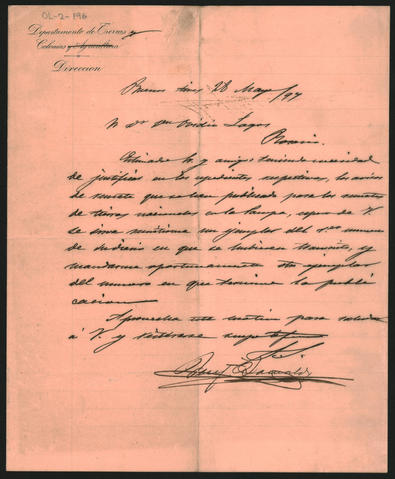 OL-2-196
Departamento de Tierras y
Colonias y Agricultura
Direccion
Buenos Aires 28 Mayo/97
Ovidio Lagos
Rosario
Estimado Sr. y amigo: teniendo necesidad
de justificar en los espedientes respectivos, los avisos
de remate que se han publicado para los remates
de tierras nacionales en la Pampa, espero de V.
se sirva remitirme un ejemplar del 1er numero
de su diario en que se hubiesen transcrito, y
mandarme oportunamente otro ejemplar
del numero en que termine la publi
cacion
Aprovecho este motivo para saludar
á V. y